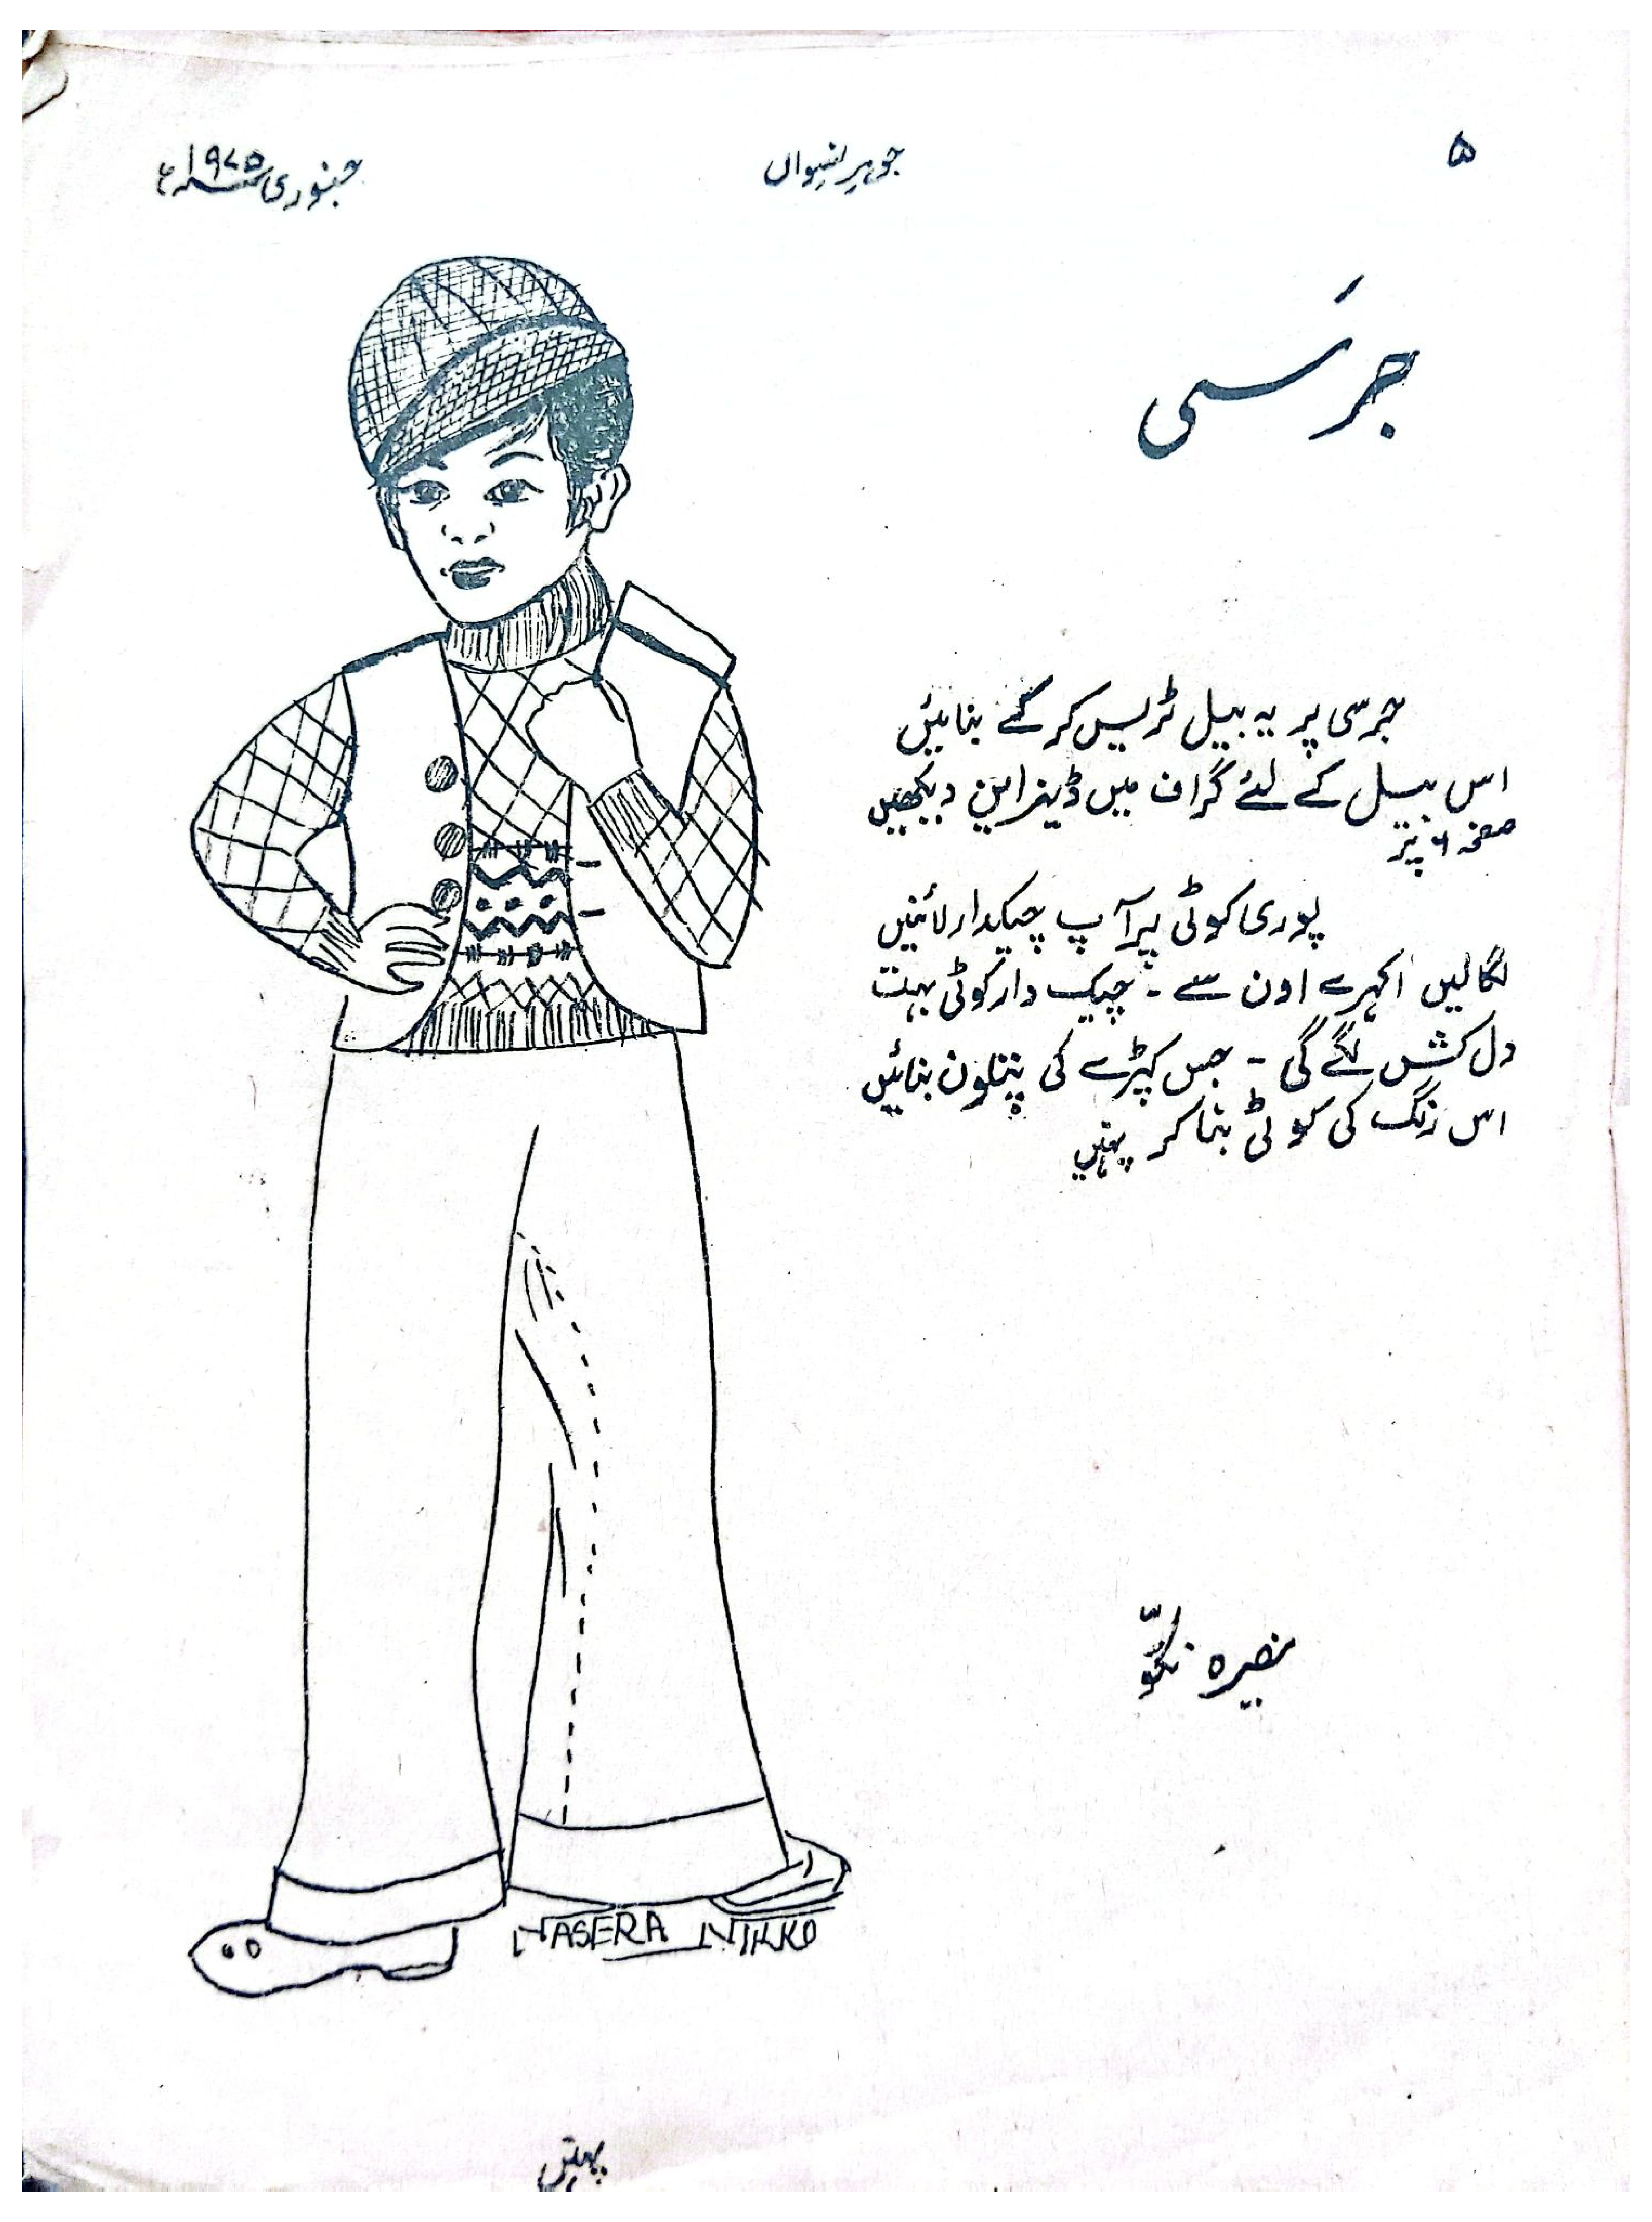 ۵
جوہر نسواں
جنوری ۱۹۷۵ء
جرسی
جرسی پر یہ بیل ٹریس کر کے بنائیں
اس بیل کے لئے گراف میں ڈیزاین دیکھیں
صفحہ ۶ پر
پوری کوٹی پر آپ چیکدار لائنیں
لگالیں اکہرے اون سے ۔ چیک دار کوٹی بہت
دل کش لگے گی ۔ جس کپڑے کی پتلون بنائیں
اس رنگ کی کوٹی بنا کر پہنیں
نصیرہ نکّو
NASERA NIKKO